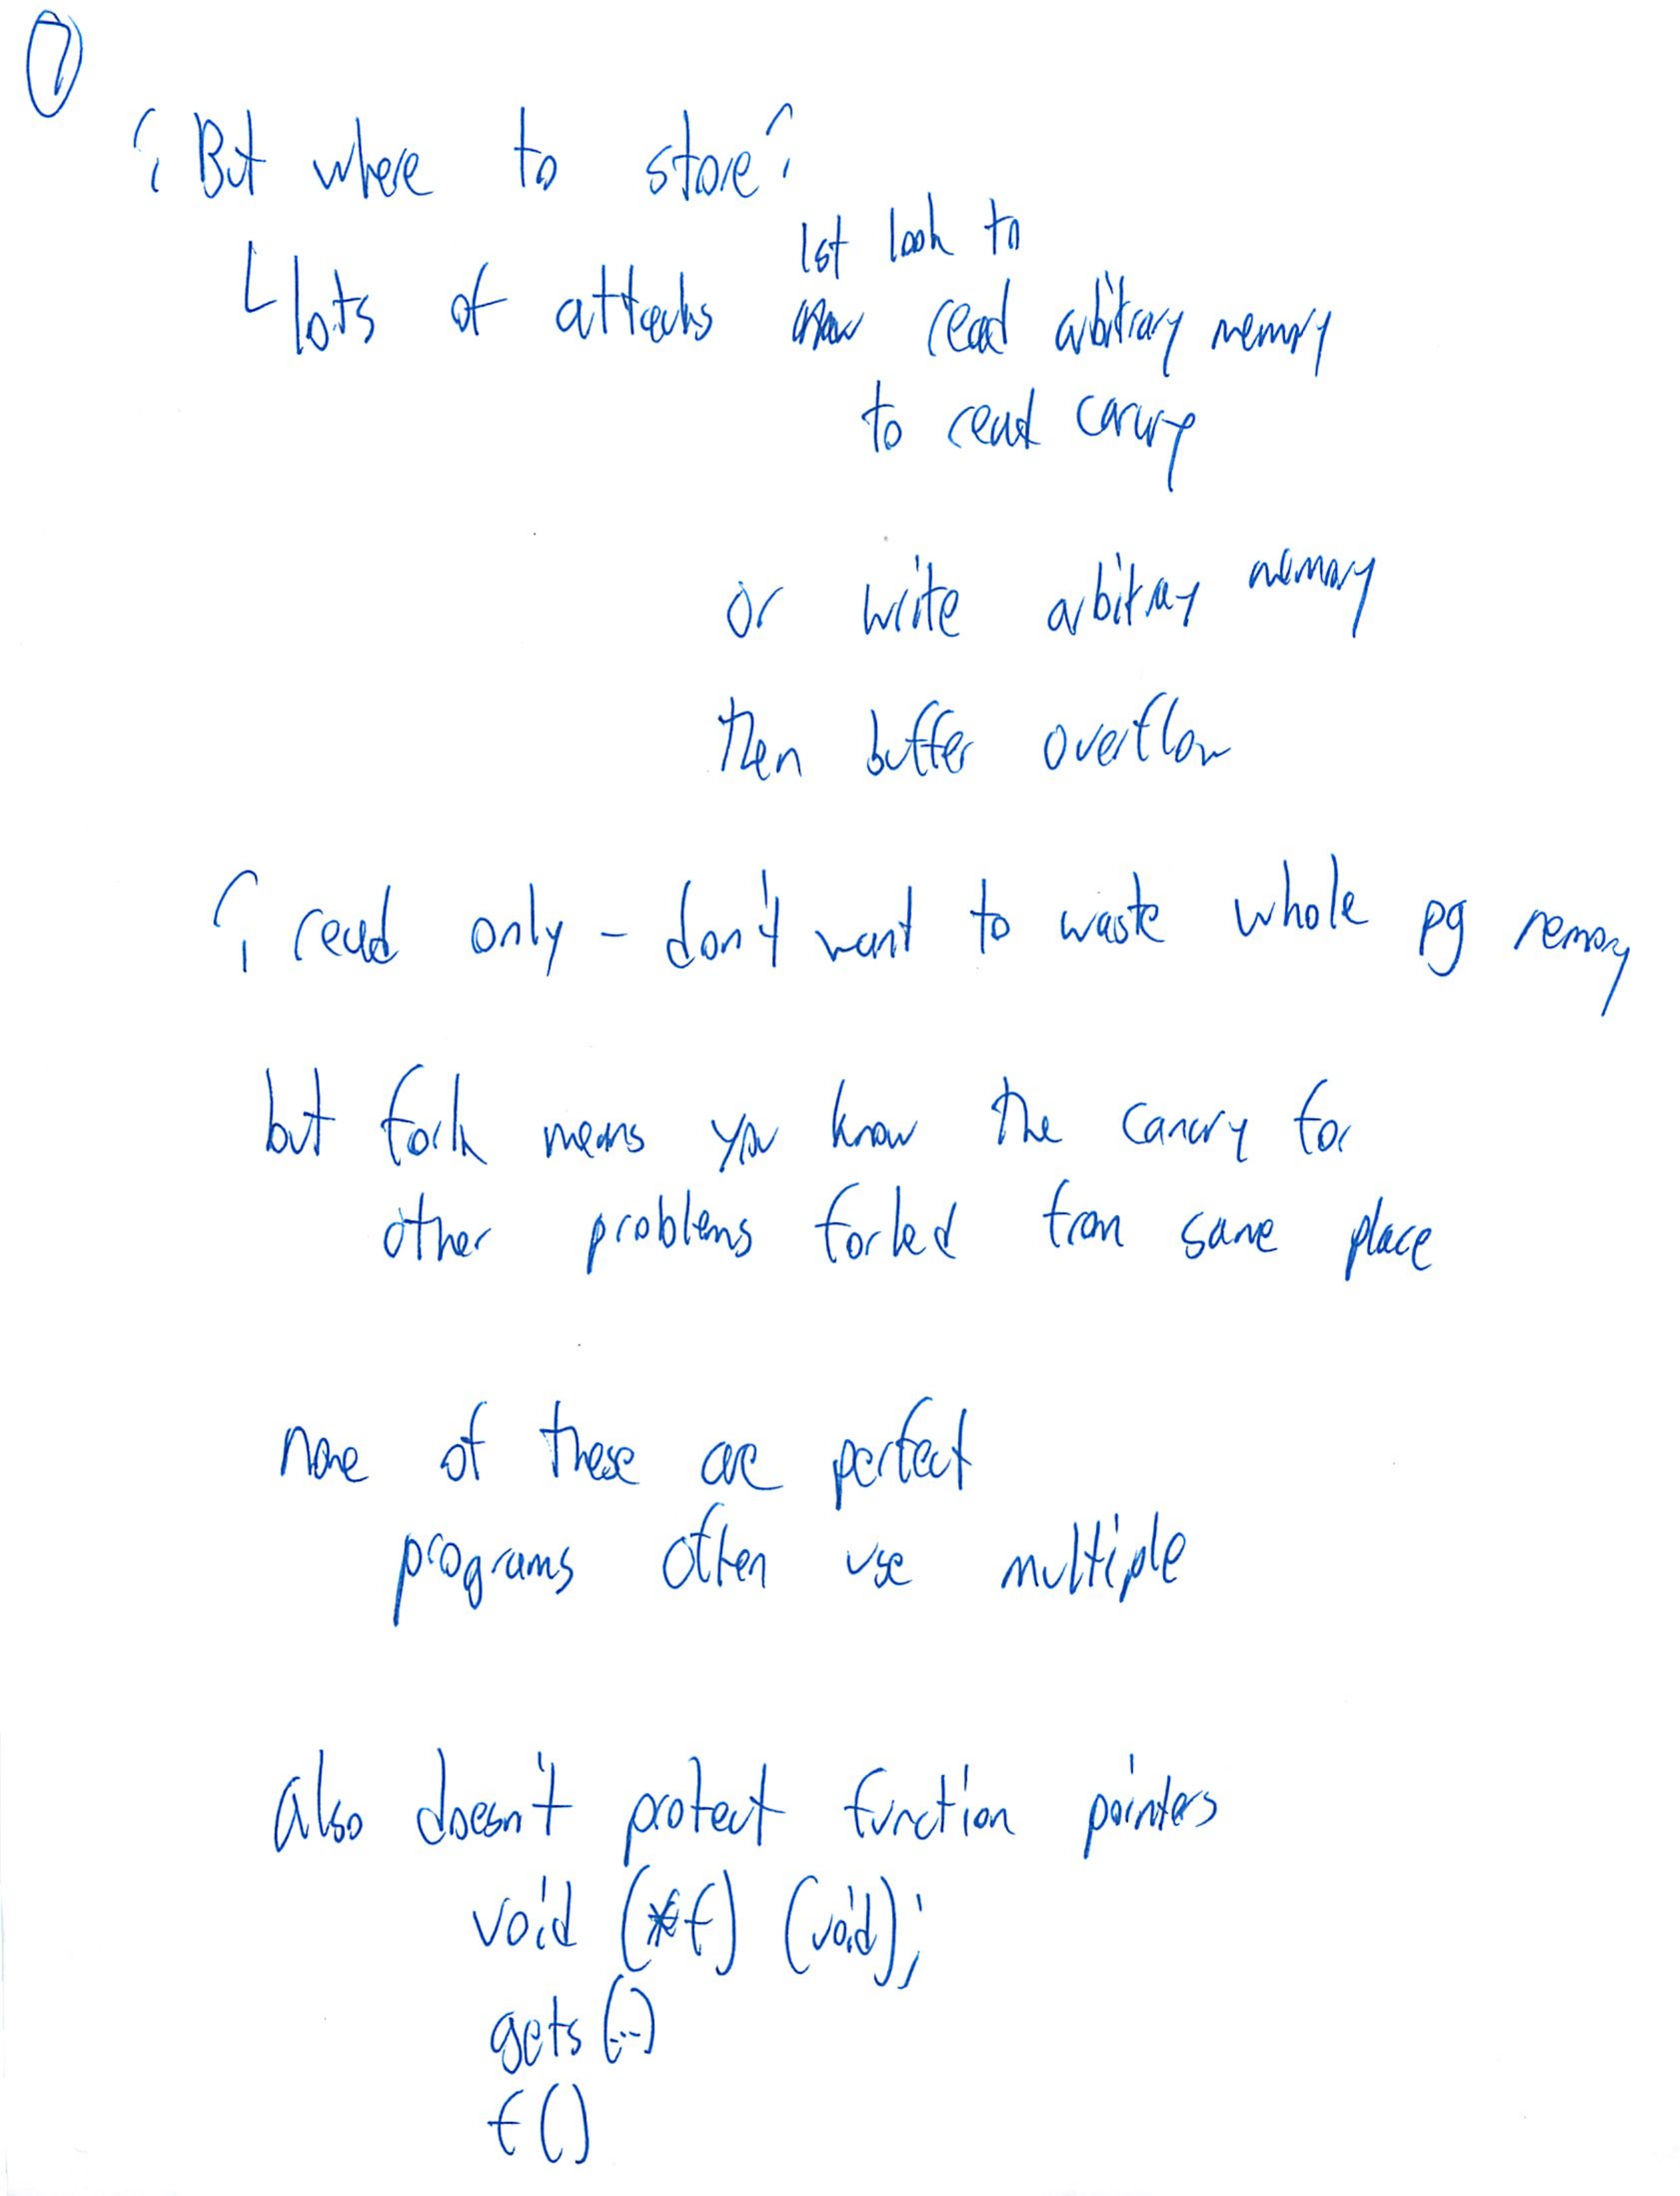 7
¿ But where to store?
1st look to
lots of attacks read arbitrary memory
to read canary
or write arbitrary memory
then buffer overflow
¿ read only - don't want to waste whole pg memory
but fork means you know the canary for
other problems forked from same place
None of these are perfect
programs often use multiple
Also doesn't protect function pointers
void (*f) (void);
gets (...)
f ()